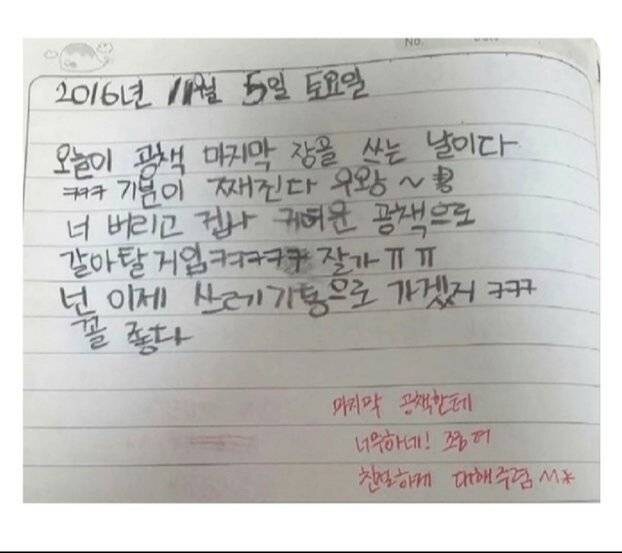 No.
2016년 11월 5일 토요일
오늘이 공책 마지막 장을 쓰는 날이다
ㅋㅋㅋ 기분이 째진다 우왕~
너 버리고 겁나 귀여운 공책으로
갈아탈거임ㅋㅋㅋㅋㅋ 잘가 ㅠㅠ
넌 이제 쓰레기통으로 가겠지 ㅋㅋㅋ
꼴 좋다
마지막 공책한테
너무하네! 조금 더
친절하게 대해주렴 ^^*